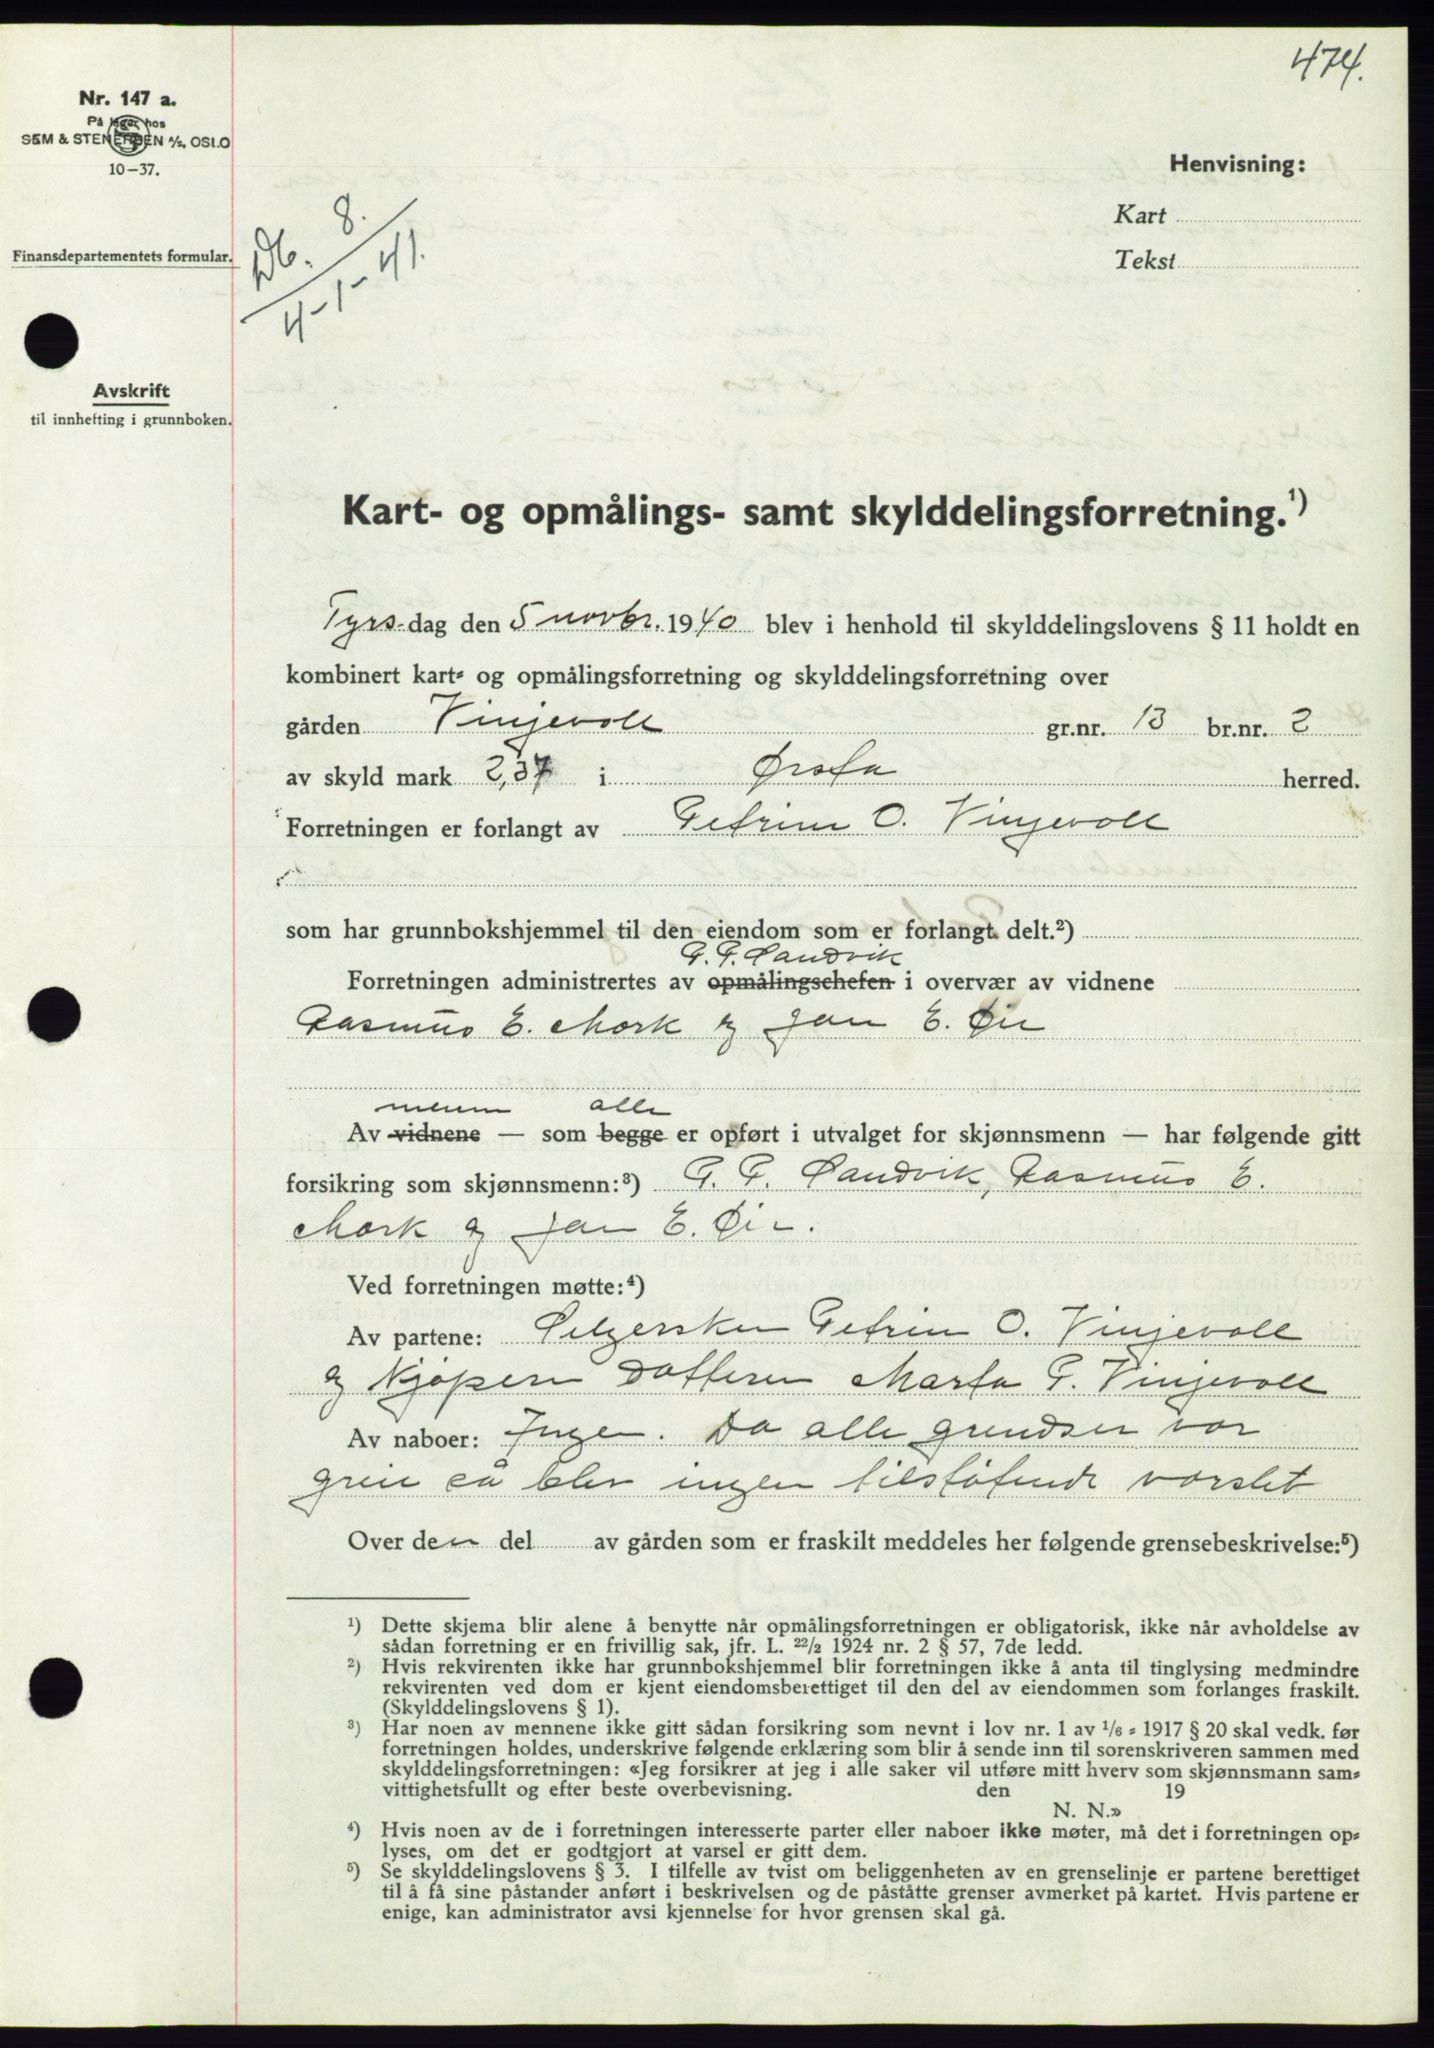 474.
Nr. 147 a.
På lager hos
SEM & STENERSEN A/S, OSLO
10-37.
Henvisning:
Kart
Tekst
Finansdepartementets formular.
Db. 8.
4-1-41.
Avskrift
til innhefting i grunnboken.
Kart- og opmålings- samt skylddelingsforretning.¹)
Tyrsdag den 5 novbr. 1940 blev i henhold til skylddelingslovens § 11 holdt en
kombinert kart- og opmålingsforretning og skylddelingsforretning over
gården Vinjevoll gr.nr. 13 br.nr. 2
av skyld mark 2,37 i Ørsta herred.
Forretningen er forlangt av Petrine O. Vinjevoll
som har grunnbokshjemmel til den eiendom som er forlangt delt.²)
P. P. Sandvik
Forretningen administrertes av opmålingschefen i overvær av vidnene
Rasmus E. Mork og Jon E. Øie
menn alle
Av vidnene — som begge er opført i utvalget for skjønnsmenn — har følgende gitt
forsikring som skjønnsmenn:³) P. P. Sandvik, Rasmus E.
Mork og Jon E. Øie.
Ved forretningen møtte:⁴)
Av partene: Selgersken Petrine O. Vinjevoll
og Kjøperen Datteren Marta P. Vinjevoll
Av naboer: Ingen. Da alle grendser var
grei så blev ingen tilstøtende varslet
Over den del av gården som er fraskilt meddeles her følgende grensebeskrivelse:⁵)
¹) Dette skjema blir alene å benytte når opmålingsforretningen er obligatorisk, ikke når avholdelse av
sådan forretning er en frivillig sak, jfr. L. 22/2 1924 nr. 2 § 57, 7de ledd.
²) Hvis rekvirenten ikke har grunnbokshjemmel blir forretningen ikke å anta til tinglysing medmindre
rekvirenten ved dom er kjent eiendomsberettiget til den del av eiendommen som forlanges fraskilt.
(Skylddelingslovens § 1).
³) Har noen av mennene ikke gitt sådan forsikring som nevnt i lov nr. 1 av 1/6 - 1917 § 20 skal vedk. før
forretningen holdes, underskrive følgende erklæring som blir å sende inn til sorenskriveren sammen med
skylddelingsforretningen: «Jeg forsikrer at jeg i alle saker vil utføre mitt hverv som skjønnsmann sam-
vittighetsfullt og efter beste overbevisning. den 19
N. N.»
⁴) Hvis noen av de i forretningen interesserte parter eller naboer ikke møter, må det i forretningen op-
lyses, om det er godtgjort at varsel er gitt dem.
⁵) Se skylddelingslovens § 3. I tilfelle av tvist om beliggenheten av en grenselinje er partene berettiget
til å få sine påstander anført i beskrivelsen og de påståtte grenser avmerket på kartet. Hvis partene er
enige, kan administrator avsi kjennelse for hvor grensen skal gå.